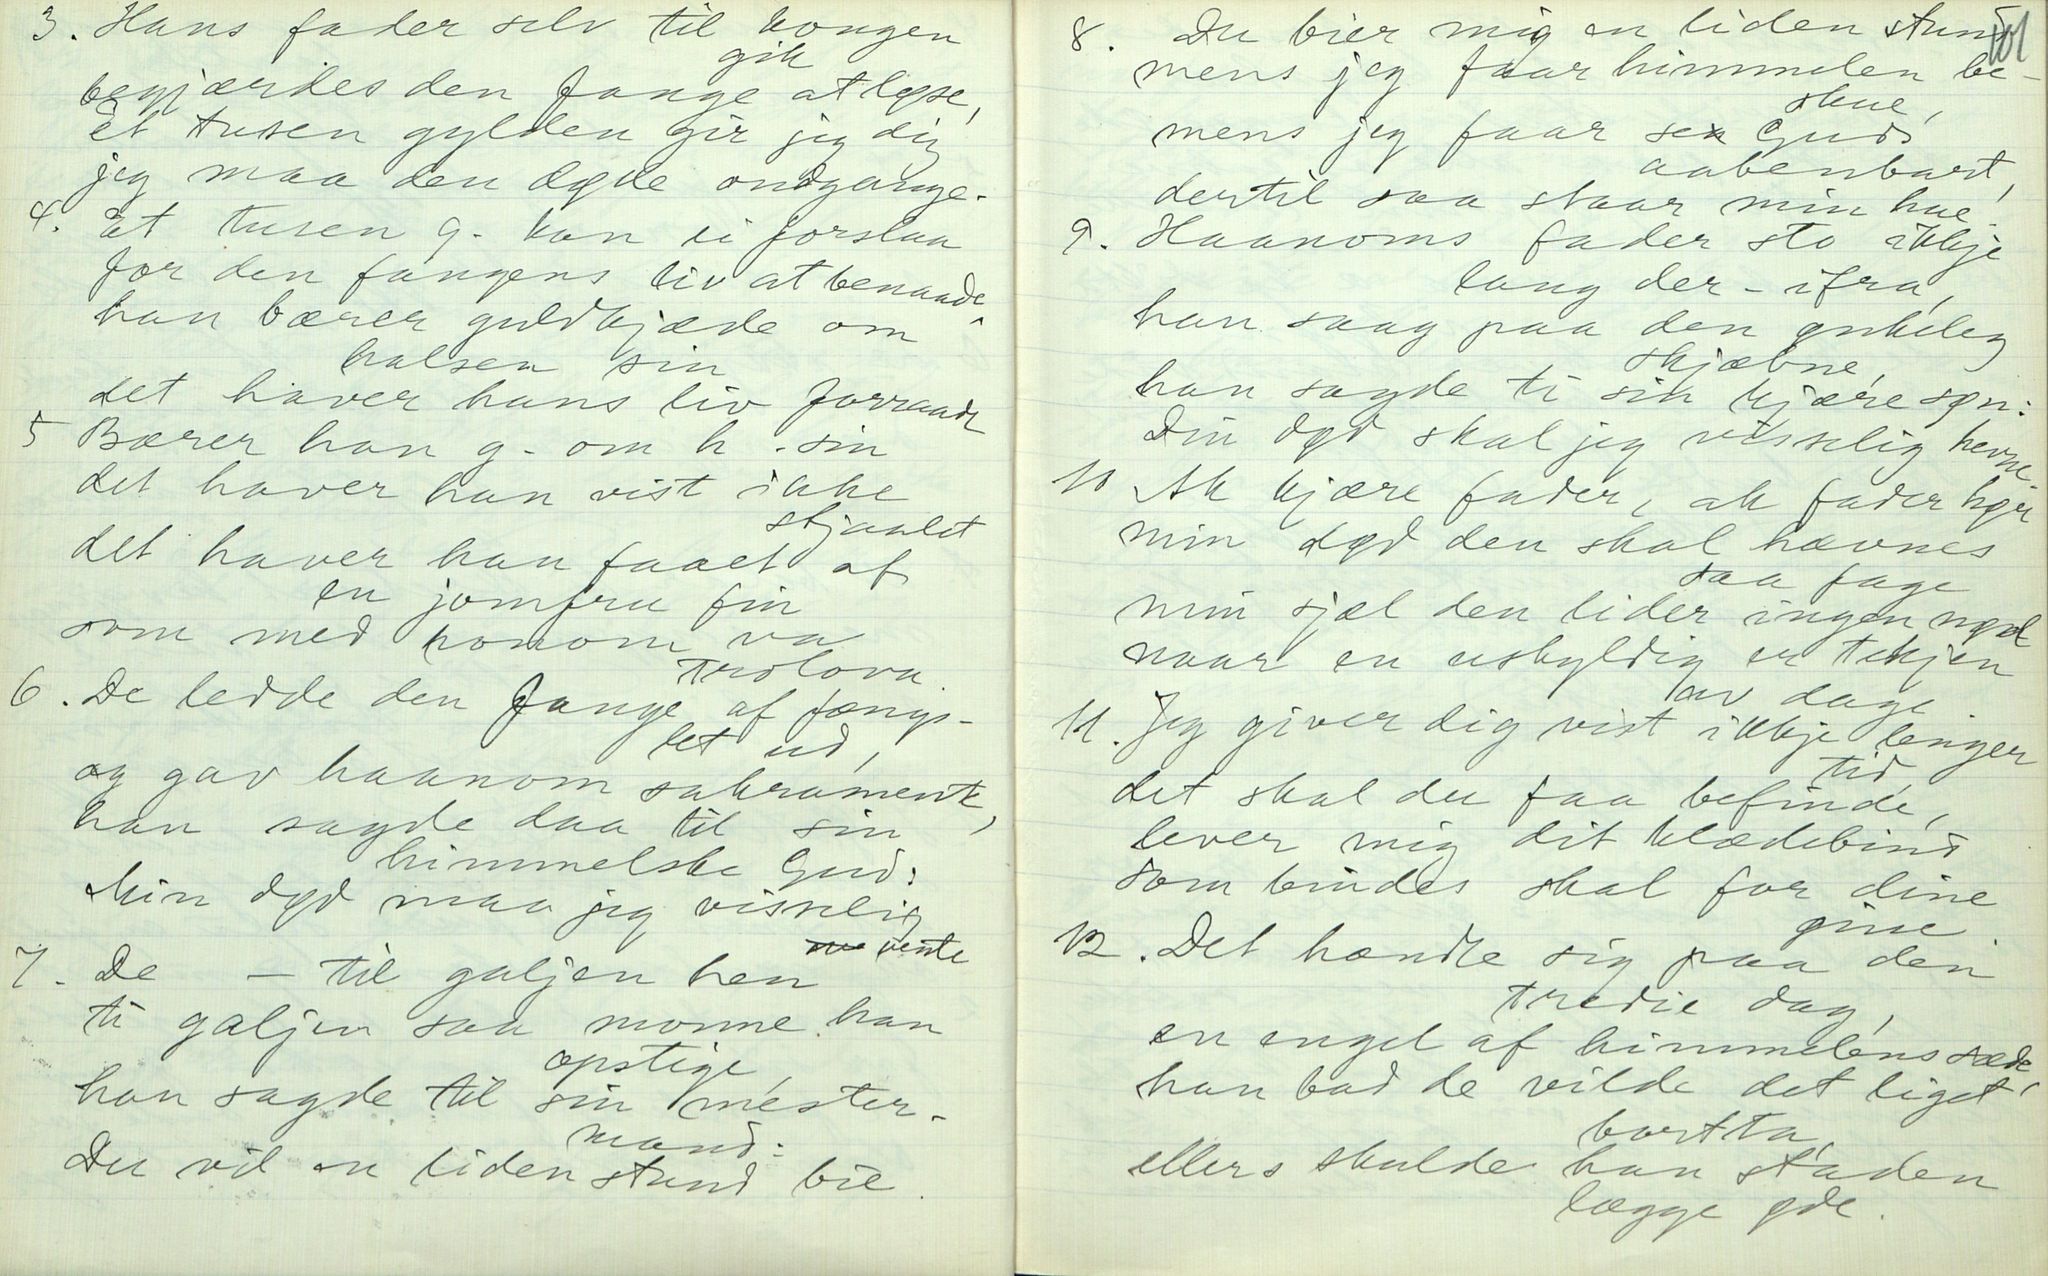 3. Hans fader selv til kongen
gik
begjærdes den fange at løse,
Et tusen gylden gir jeg dig
jeg maa den døde undgange.
4. Et tusen g. kan ei forslaa
for den fangens liv at benaade,
han bærer guldkjæde om
halsen sin
det haver hans liv forraadt
5 Bærer han g. om h. sin
det haver han vist ikke
stjaalet
det haver han faaet af
en jomfru fin
som med honom va
trolova
6. De ledde den fange af fængs-
let ud,
og gav haanom sakramente,
han sagde daa til sin
himmelske Gud:
Min død maa jeg visselig
vente
7. De — til galjen hen
ti galjen saa monne han
opstige,
han sagde til sin mester-
mand:
Du vil en liden stund bie.
101
8. Du bier mig en liden stund
mens jeg faar himmelen be-
skue,
mens jeg faar se Guds
aabenbart,
dertil saa staar min hue.
9. Haanoms fader sto ikkje
lang der-ifra,
han saag paa den ynkeleg
skjæbne,
han sagde ti sin kjære søn:
Din død skal jeg visselig hevne.
10 Ak kjære fader, ak fader hør
min død den skal hævnes
saa fage
min sjæl den lider ingen nød
naar en uskyldig er tekjen
av dage.
11. Jeg giver dig vist ikkje lenger
tid,
det skal du faa befinde,
lever mig dit klædebind
som bindes skal for dine
øine.
12. Det hændte sig paa den
tredie dag,
en engel af himmelens sæde,
han bad de vilde det liget
bortta,
ellers skulde han staden
lægge øde.